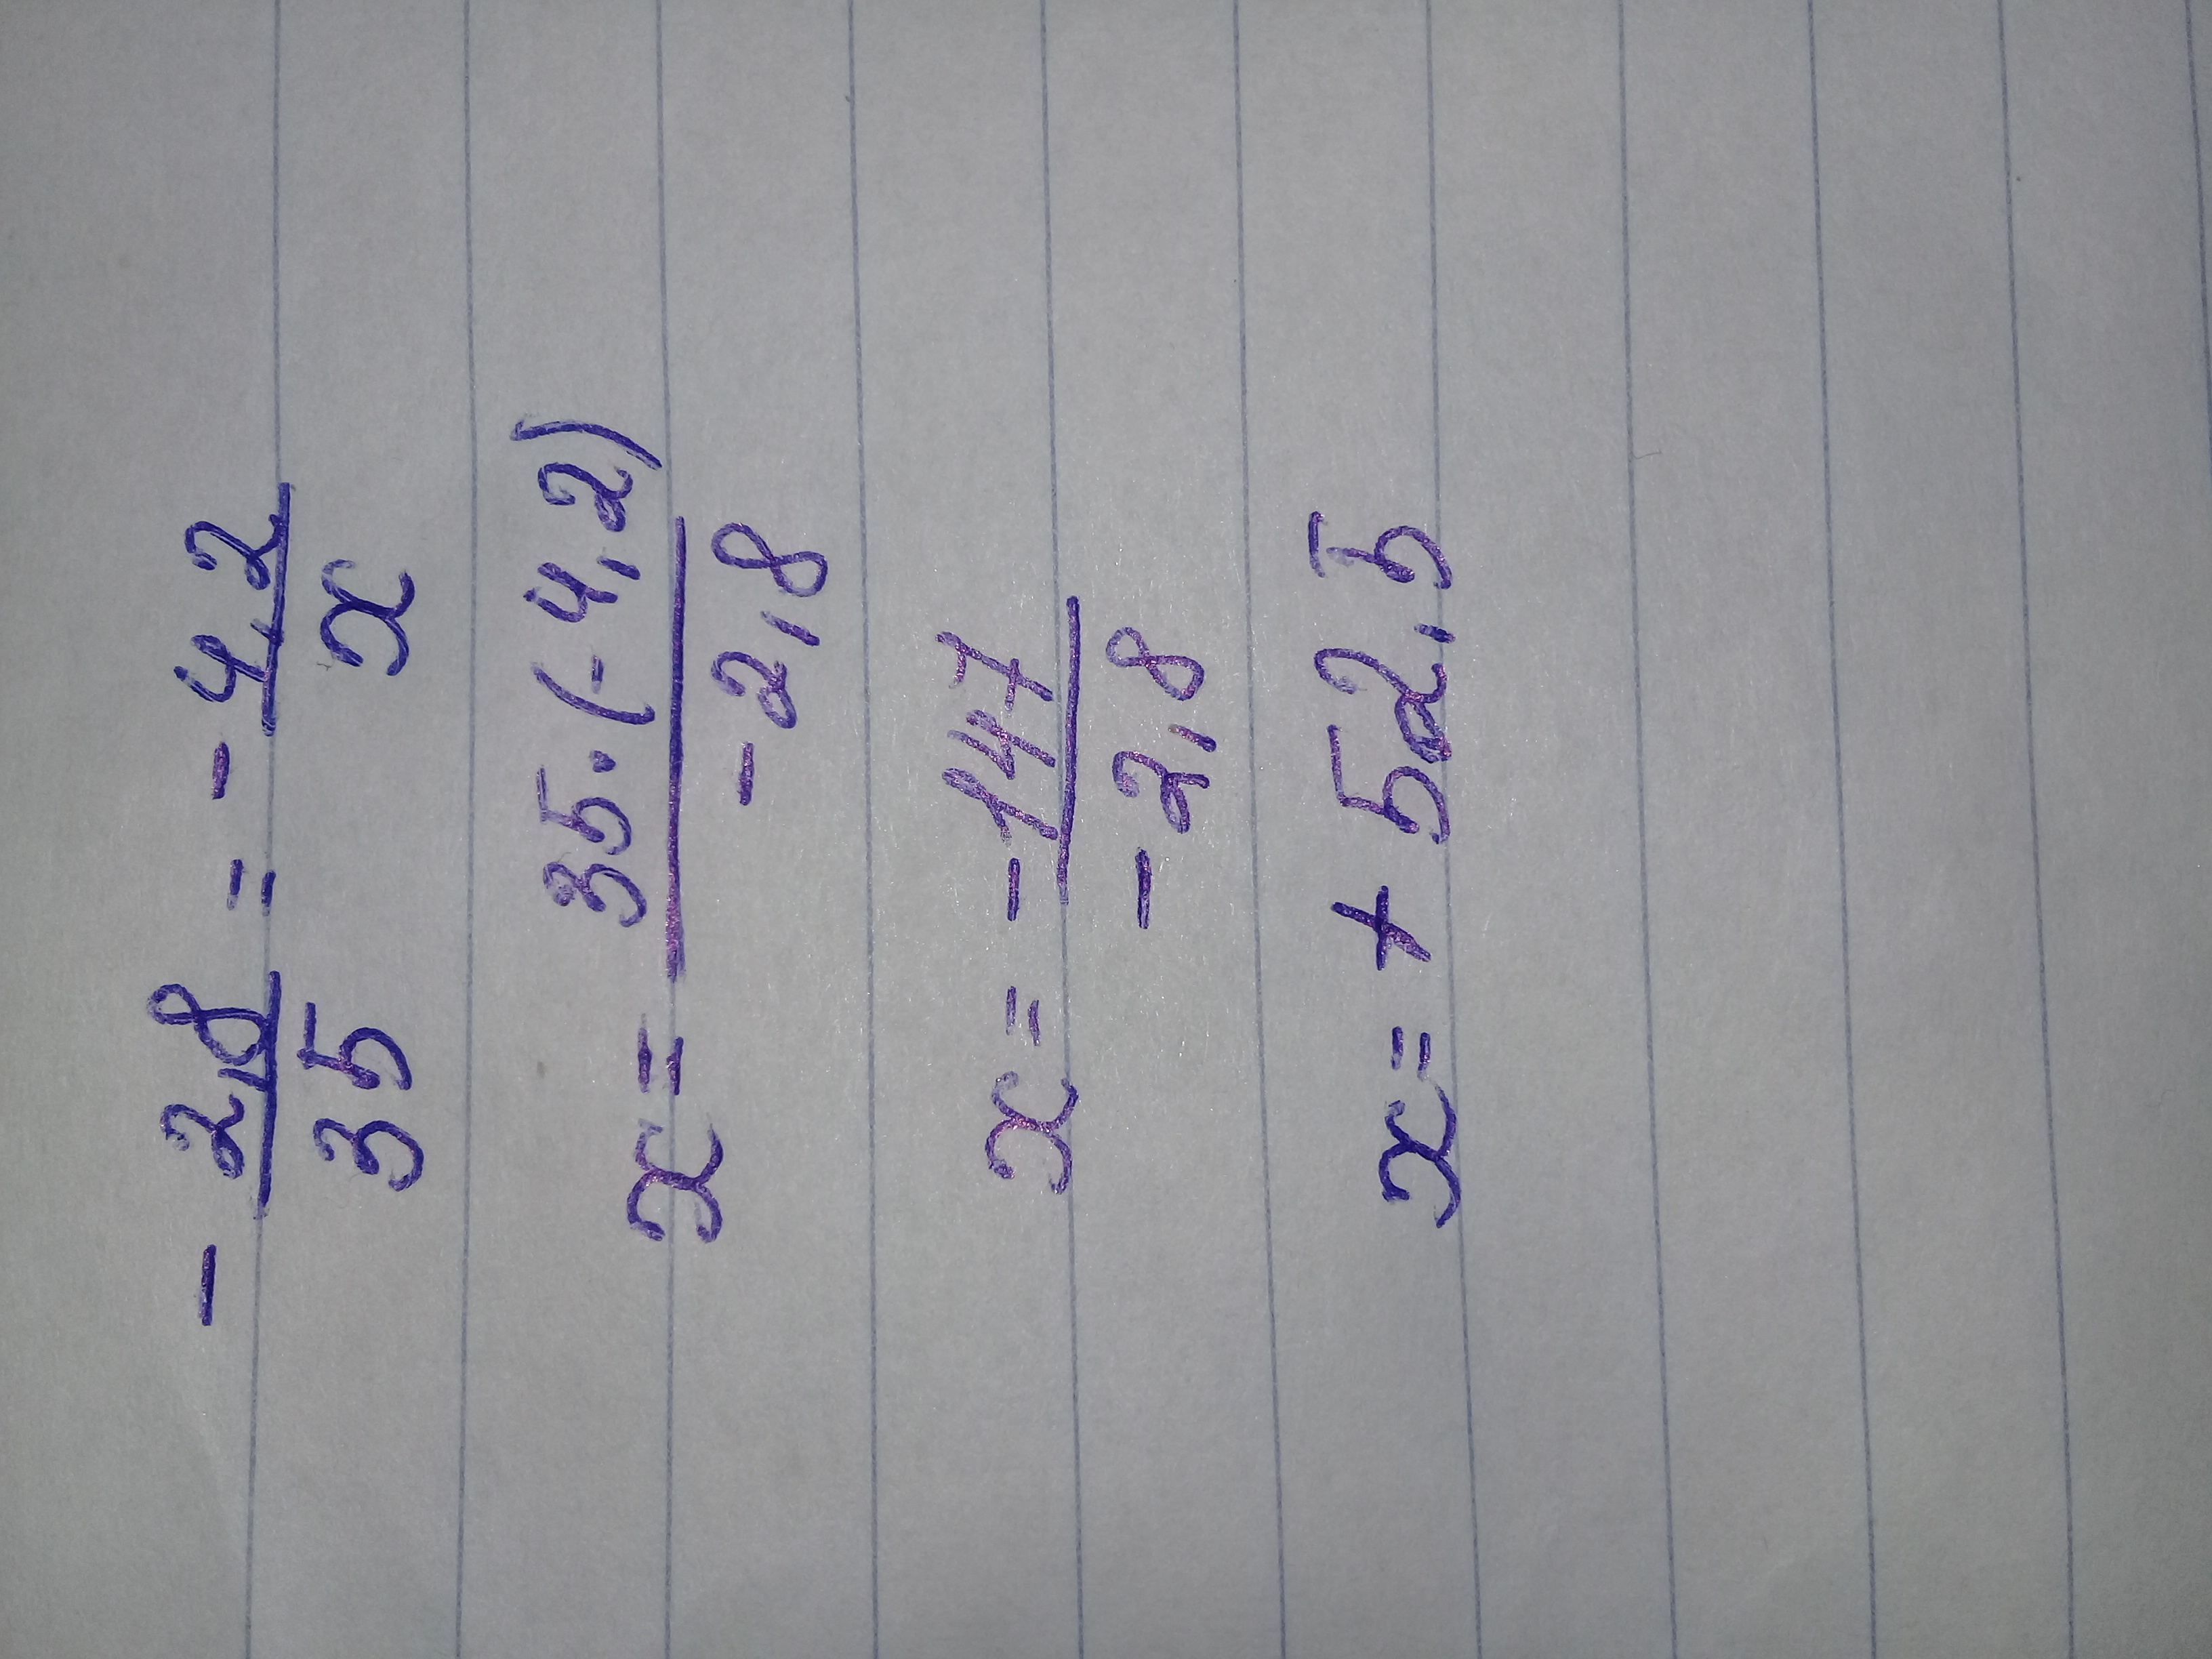 - 2,8/35 = - 4,2/x
x = 35·(-4,2)/-2,8
x = -147/-2,8
x = + 52,5